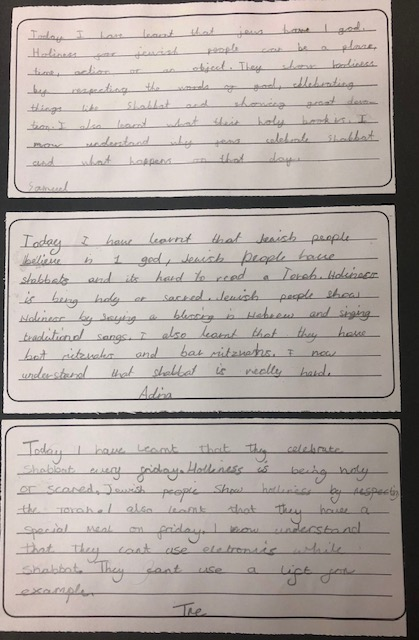 Today I have learnt that jews have 1 god.
Holiness for jewish people can be a place,
time, action or an object. They show holiness
by respecting the words of god, celebrating
things like Shabbat and showing great devo
tion. I also learnt what their holy book is. I
now understand why jews celebrate Shabbat
and what happens on that day.
Samuel
Today I have learnt that Jewish people
believe in 1 god, Jewish people have
shabbats and its hard to read a Torah. Holiness
is being holy or sacred. Jewish people show
Holiness by saying a blessing in Hebrew and singing
traditional songs. I also learnt that they have
bat mitzvahs and bar mitzvahs. I now
understand that shabbat is really hard.
Today I have Learnt That They celebrate
Shabbat every friday. Holliness is being holy
or scared. Jewish people show holiness by respecting
the Torah. I also learnt that They have a
special meal on friday. I now understand
that They cant use eletronics while
Shabbat. They cant use a light for
example.